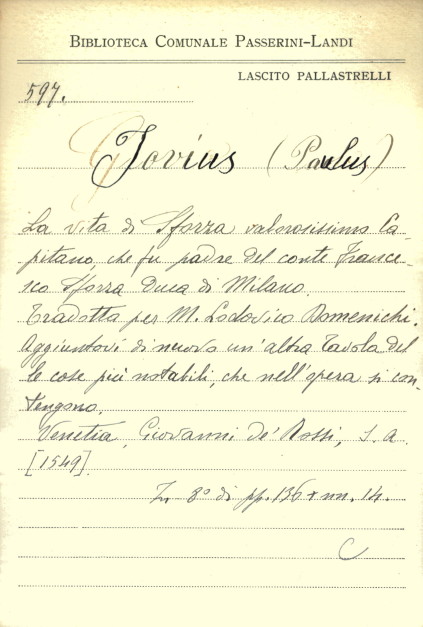 BIBLIOTECA COMUNALE PASSERINI-LANDI
LASCITO PALLASTRELLI
597.
Jovius (Paulus)
La vita di Sforza valorosissimo Ca-
pitano, che fu padre del conte France-
sco Sforza Duca di Milano.
Tradotta per M. Lodovico Domenichi.
Aggiuntovi di nuovo un'altra Tavola del
le cose più notabili, che nell'opera si con-
tengono.
Venetia, Giovanni de' Rossi, S. A.
[1549].
8° di pp. 136 + nn. 14.
C